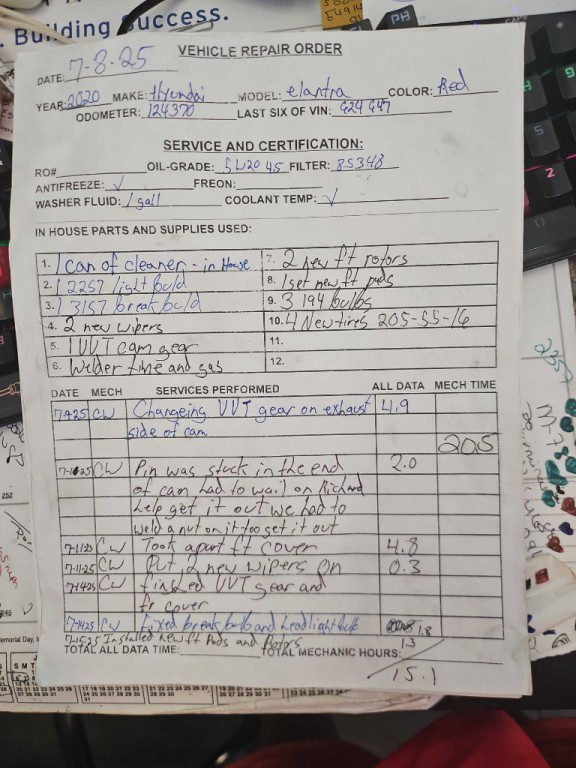 . Building Success.
VEHICLE REPAIR ORDER
DATE: 7-8-25
YEAR: 2020 MAKE: Hyundai MODEL: elantra COLOR: Red
ODOMETER: 124370 LAST SIX OF VIN: 424647
SERVICE AND CERTIFICATION:
RO# OIL-GRADE: 5W20 4.5 FILTER: 85348
ANTIFREEZE: √ FREON:
WASHER FLUID: 1 gall COOLANT TEMP: √
IN HOUSE PARTS AND SUPPLIES USED:
1. 1 can of cleaner - in House 7. 2 new ft rotors
2. 1 2257 light bulb 8. 1 set new ft pads
3. 1 3157 break bulb 9. 3 194 bulbs
4. 2 new wipers 10. 4 New tires 205-55-16
5. 1 VVT cam gear 11.
6. Welder time and gas 12.
DATE MECH SERVICES PERFORMED ALL DATA MECH TIME
7-9-25 CW Changeing VVT gear on exhaust 4.9
side of cam
20.5
7-10-25 CW Pin was stuck in the end 2.0
of cam had to wait on Richard
help get it out we had to
weld a nut on it too get it out
7-11-25 CW Took apart ft cover 4.8
7-11-25 CW Put 2 new wipers on 0.3
7-14-25 CW finshed VVT gear and
ft cover
7-14-25 CW fixed break bulb and headlight bulb 1.8
7-15-25 Installed new ft Pads and Rotors 1.3
TOTAL ALL DATA TIME: TOTAL MECHANIC HOURS:
15.1